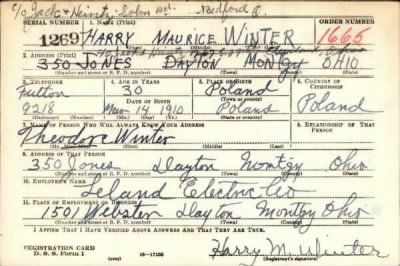 c/o Jack & Heintz Solon Rd. Bedford O.
SERIAL NUMBER 1. NAME (Print) ORDER NUMBER
1269 HARRY MAURICE WINTER 1665
(First) (Middle) (Last)
2. ADDRESS (Print)
350 JONES DAYTON MONTGY OHIO
(Number and street or R. F. D. number) (Town) (County) (State)
3. TELEPHONE 4. AGE IN YEARS 5. PLACE OF BIRTH 6. COUNTRY OF CITIZENSHIP
Fulton 30 Poland
DATE OF BIRTH (Town or county)
9218 Mar 14 1910 Poland Poland
(Exchange) (Number) (Mo.) (Day) (Yr.) (State or country)
7. NAME OF PERSON WHO WILL ALWAYS KNOW YOUR ADDRESS 8. RELATIONSHIP OF THAT PERSON
Theodore Winter
(Mr., Mrs., Miss) (First) (Middle) (Last)
9. ADDRESS OF THAT PERSON
350 Jones Dayton Montgy Ohio
(Number and street or R. F. D. number) (Town) (County) (State)
10. EMPLOYER'S NAME
Leland Electric Co
11. PLACE OF EMPLOYMENT OR BUSINESS
1501 Webster Dayton Montgy Ohio
(Number and street or R. F. D. number) (Town) (County) (State)
I AFFIRM THAT I HAVE VERIFIED ABOVE ANSWERS AND THAT THEY ARE TRUE.
REGISTRATION CARD
D. S. S. Form 1 (over) 16-17105 Harry M. Winter
(Registrant's signature)